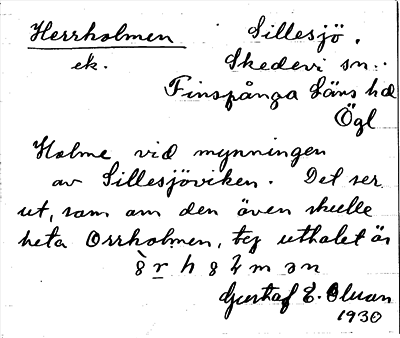 Herrholmen Sillesjö.
ek. Skedevi sn.
Finspånga Läns hd
Ögl
Holme vid mynningen
av Sillesjöviken. Det ser
ut, som om den även skulle
heta Orrholmen, ty uttalet är
Gustaf E. Olsson
1930